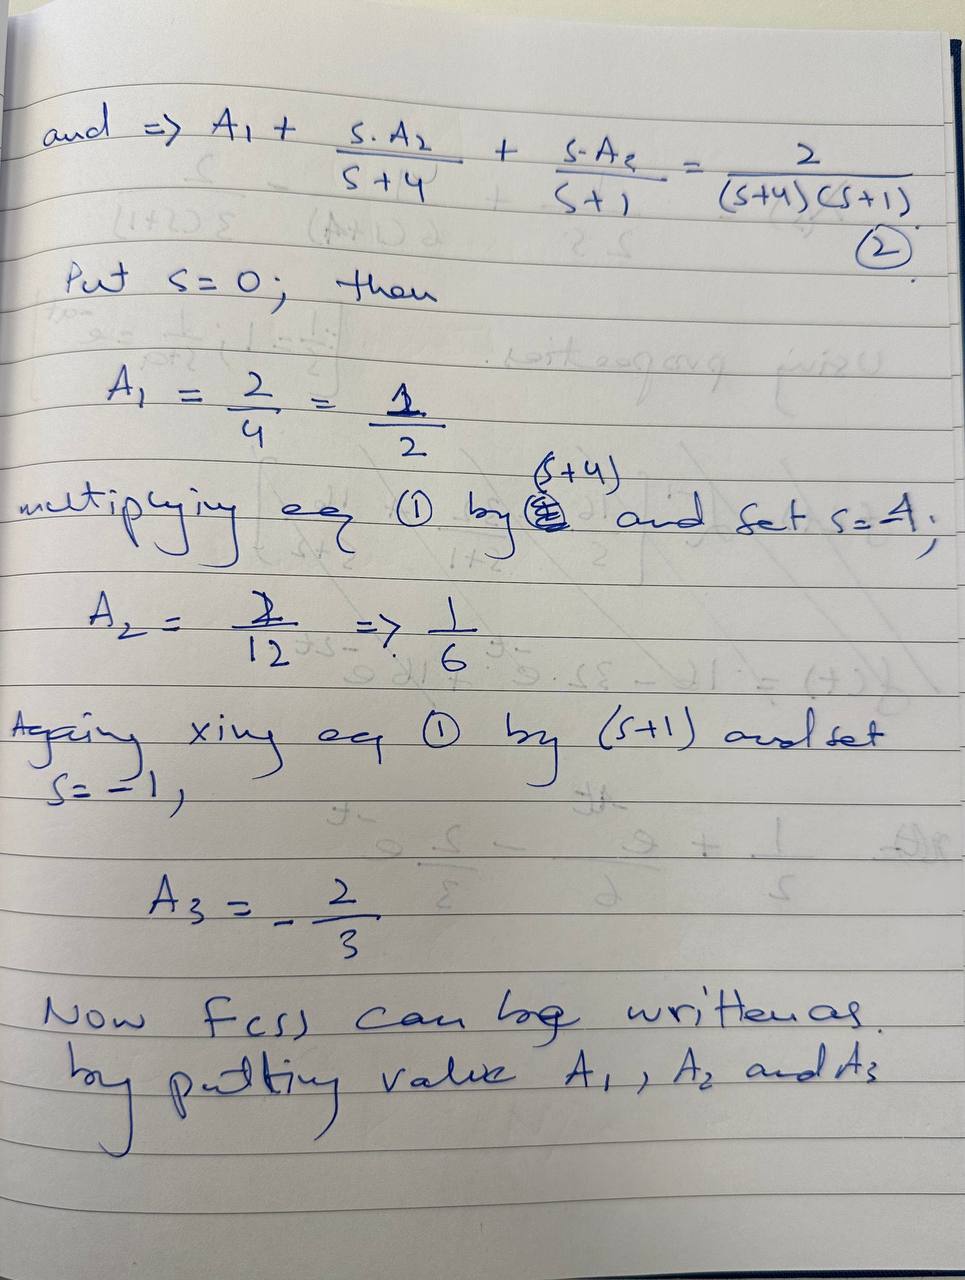 and => A₁ + s.A₂/(s+4) + s.A₃/(s+1) = 2/((s+4)(s+1))
②
Put s=0; then
A₁ = 2/4 = 1/2
(s+4)
multiplying eq ① by and set s=-4;
A₂ = 2/12 => 1/6
Againg xing eq ① by (s+1) and set
s=-1,
A₃ = -2/3
Now F(s) can be written as.
by putting value A₁, A₂ and A₃